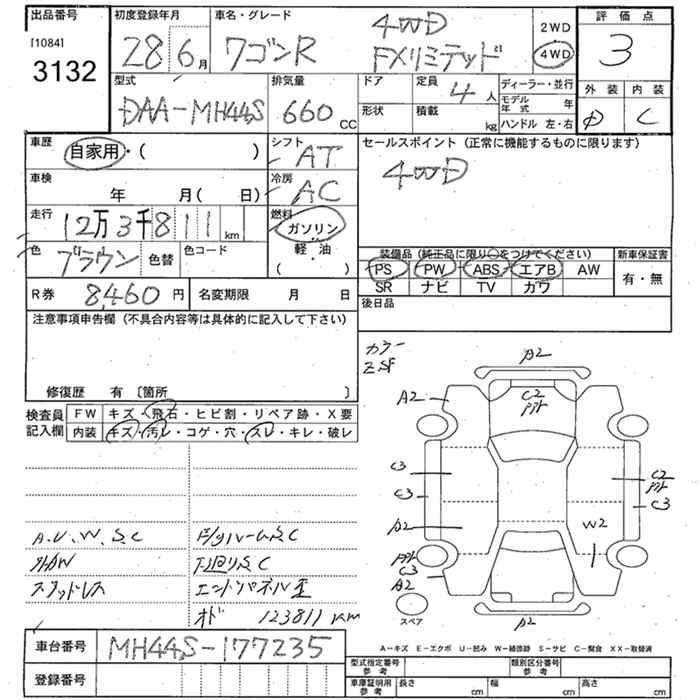 出品番号
[1084]
3132
初度登録年月
28 6月
車名・グレード
ワゴンR
4WD
FXリミテッド
2WD
4WD
評価点
3
外装 内装
D C
型式
DAA-MH44S
排気量
660 CC
ドア
形状
定員 4 人
積載 kg
ディーラー・並行
モデル年式 年
ハンドル 左・右
車歴
自家用・( )
車検
年 月( 日)
走行
12万3千811 km
色
ブラウン
色替
色コード
シフト
AT
冷房
AC
燃料
ガソリン
軽・油
( )
セールスポイント(正常に機能するものに限ります)
4WD
装備品(純正品に限り○をつけてください)
PS PW ABS エアB AW
SR ナビ TV カワ
新車保証書
有・無
後日品
R券 8,460円
名変期限 月 日
注意事項申告欄(不具合内容等は具体的に記入して下さい)
修復歴 有〔箇所 〕
検査員記入欄
FW キズ・飛石・ヒビ割・リペア跡・X要
内装 キズ・汚レ・コゲ・穴・スレ・キレ・破レ
A.U、W、S、C
外AW
スタッドレス
ドアグルームS.C
下廻りS、C
エンドパネル歪
オド 123811km
カラー
ZSF
A2
A2
C2
C3
C3
A2
C3
A2
C2
C3
W2
A2
スペア
A-キズ E-エクボ U-凹み W-補修跡 S-サビ C-腐食 XX-取替済
車台番号 MH44S-177235
登録番号
型式指定番号 参考
類別区分番号 参考
車庫証明用 参考
長さ cm
幅 cm
高さ cm